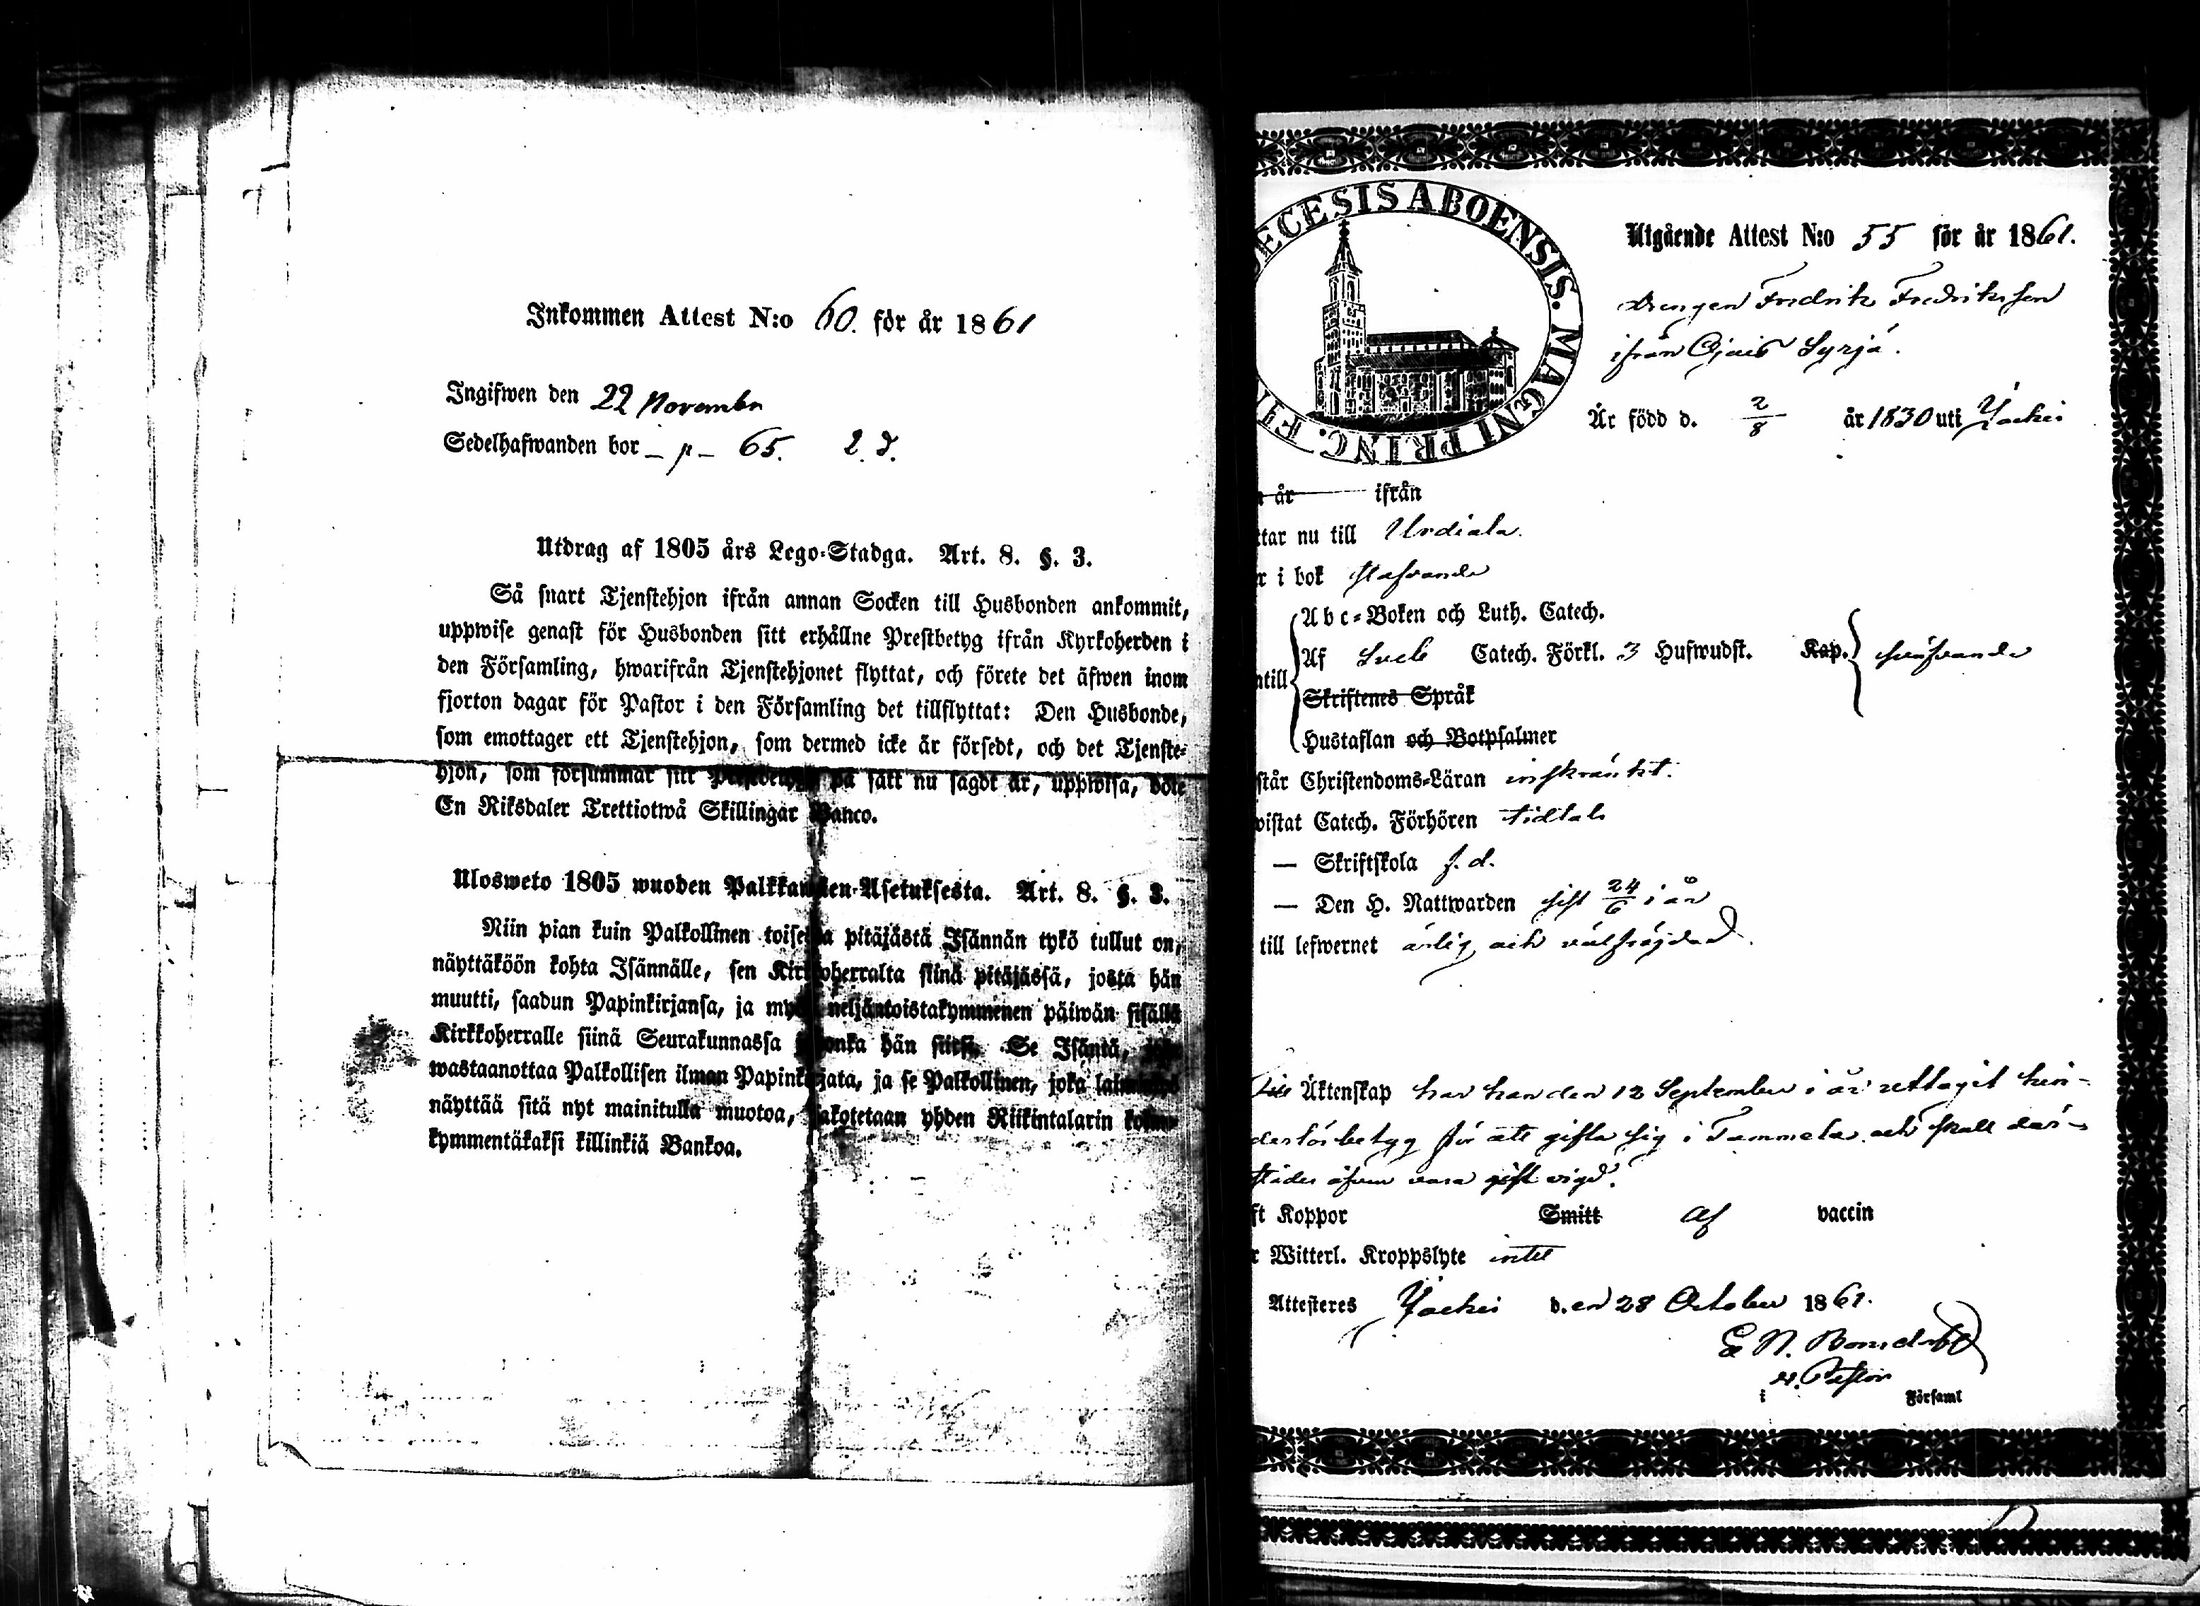 Inkommen Attest N:o 60. för år 1861
Ingifwen den 22 November
Sedelhafwanden bor - p - 65. 2. d.
Utdrag af 1805 års Lego-Stadga. Art. 8. §. 3.
Så snart Tjenstehjon ifrån annan Socken till Husbonden ankommit,
uppwise genast för Husbonden sitt erhållne Prestbetyg ifrån Kyrkoherden i
den Församling, hwarifrån Tjenstehjonet flyttat, och förete det äfwen inom
fjorton dagar för Pastor i den Församling det tillflyttat: Den Husbonde,
som emottager ett Tjenstehjon, som dermed icke är försedt, och det Tjenste-
hjon, som försummar sitt Prestbetyg på sätt nu sagdt är, uppwisa, böte
En Riksdaler Trettiotwå Skillingar Banco.
Ulosweto 1805 wuoden Palkkawäen-Asetuksesta. Art. 8. §. 3.
Niin pian kuin Palkollinen toisesta pitäjästä Isännän tykö tullut on,
näyttäköön kohta Isännälle, sen Kirkkoherralta siinä pitäjässä, josta hän
muutti, saadun Papinkirjansa, ja myös neljäntoistakymmenen päiwän sisällä
Kirkkoherralle siinä Seurakunnassa jonka hän siirsi. Se Isäntä, joka
wastaanottaa Palkollisen ilman Papinkirjata, ja se Palkollinen, joka
näyttää sitä nyt mainitulla muotoa, sakotetaan yhden Riikintalarin kolme-
kymmentäkaksi killinkiä Bankoa.
ECESIS ABOENSIS. MAGNI PRINC. FI
Utgående Attest N:o 55 för år 1861.
Drengen Fredrik Fredriksson
ifrån Ojais Syrjä.
Är född d. 2/8 år 1830 uti Ypäjä
år ifrån
tar nu till Urdiala.
r i bok stafvande
Abc-Boken och Luth. Catech.
ntill Af Sveb Catech. Förkl. 3 Hufwudst. Kap. stafvande
Skriftenes Språk
Hustaflan och Botpsalmer
står Christendoms-Läran inskränkt.
wistat Catech. Förhören tidtals
— Skriftskola s. d.
— Den H. Nattwarden sist 24/6 i år
till lefwernet ärlig och välfräjdad.
Till Äktenskap har han den 12 September i år uttagit hin-
derslösbetyg för att gifta sig i Tammela och skall där-
städes äfven vara gift vigd.
ft Koppor Smitt af vaccin
r Witterl. Kroppslyte intet
Attesteres d.en 28 October 1861.
E N. Bonsdorff
v. Pastor
i Församl